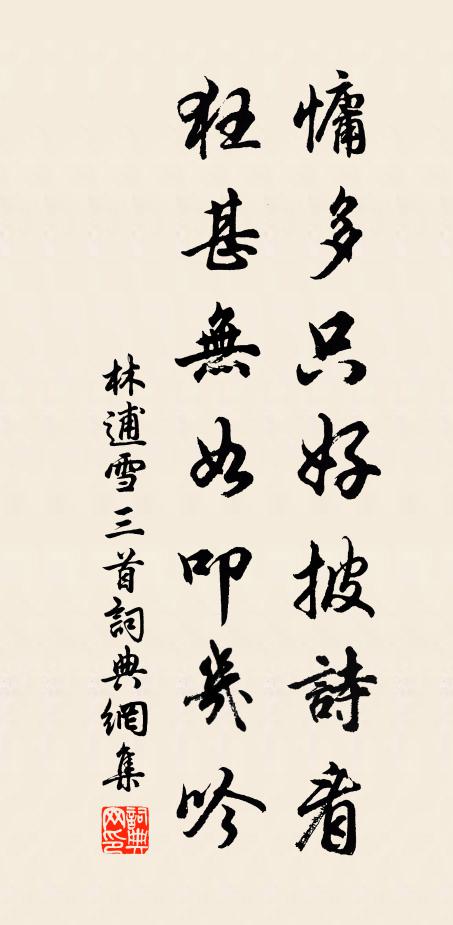 慵多只好披詩看
狂甚無如叩几吟
林逋雪三首詞典網集
詞典网印